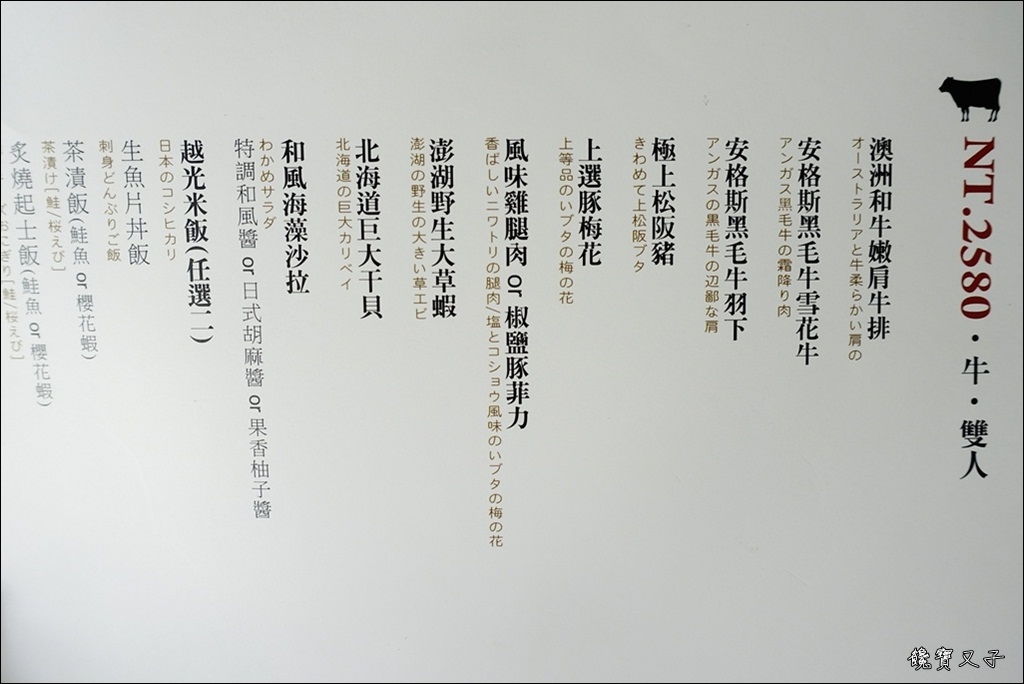 NT.2580・牛・雙人
澳洲和牛嫩肩牛排
オーストラリアと牛柔らかい肩の
安格斯黑毛牛雪花牛
アンガス黒毛牛の霜降り肉
安格斯黑毛牛羽下
アンガスの黒毛牛の辺鄙な肩
極上松阪豬
きわめて上松阪ブタ
上選豚梅花
上等品のいブタの梅の花
風味雞腿肉 or 椒鹽豚菲力
香ばしいニワトリの腿肉/塩とコショウ風味のいブタの梅の花
澎湖野生大草蝦
澎湖の野生の大きい草エビ
北海道巨大干貝
北海道の巨大カリベイ
和風海藻沙拉
わかめサラダ
特調和風醬 or 日式胡麻醬 or 果香柚子醬
越光米飯(任選二)
日本のコシヒカリ
生魚片丼飯
刺身どんぶりご飯
茶漬飯(鮭魚 or 櫻花蝦)
茶漬け[鮭/桜えび]
炙燒起士飯(鮭魚 or 櫻花蝦)
おにぎり[鮭/桜えび]
饞寶又子